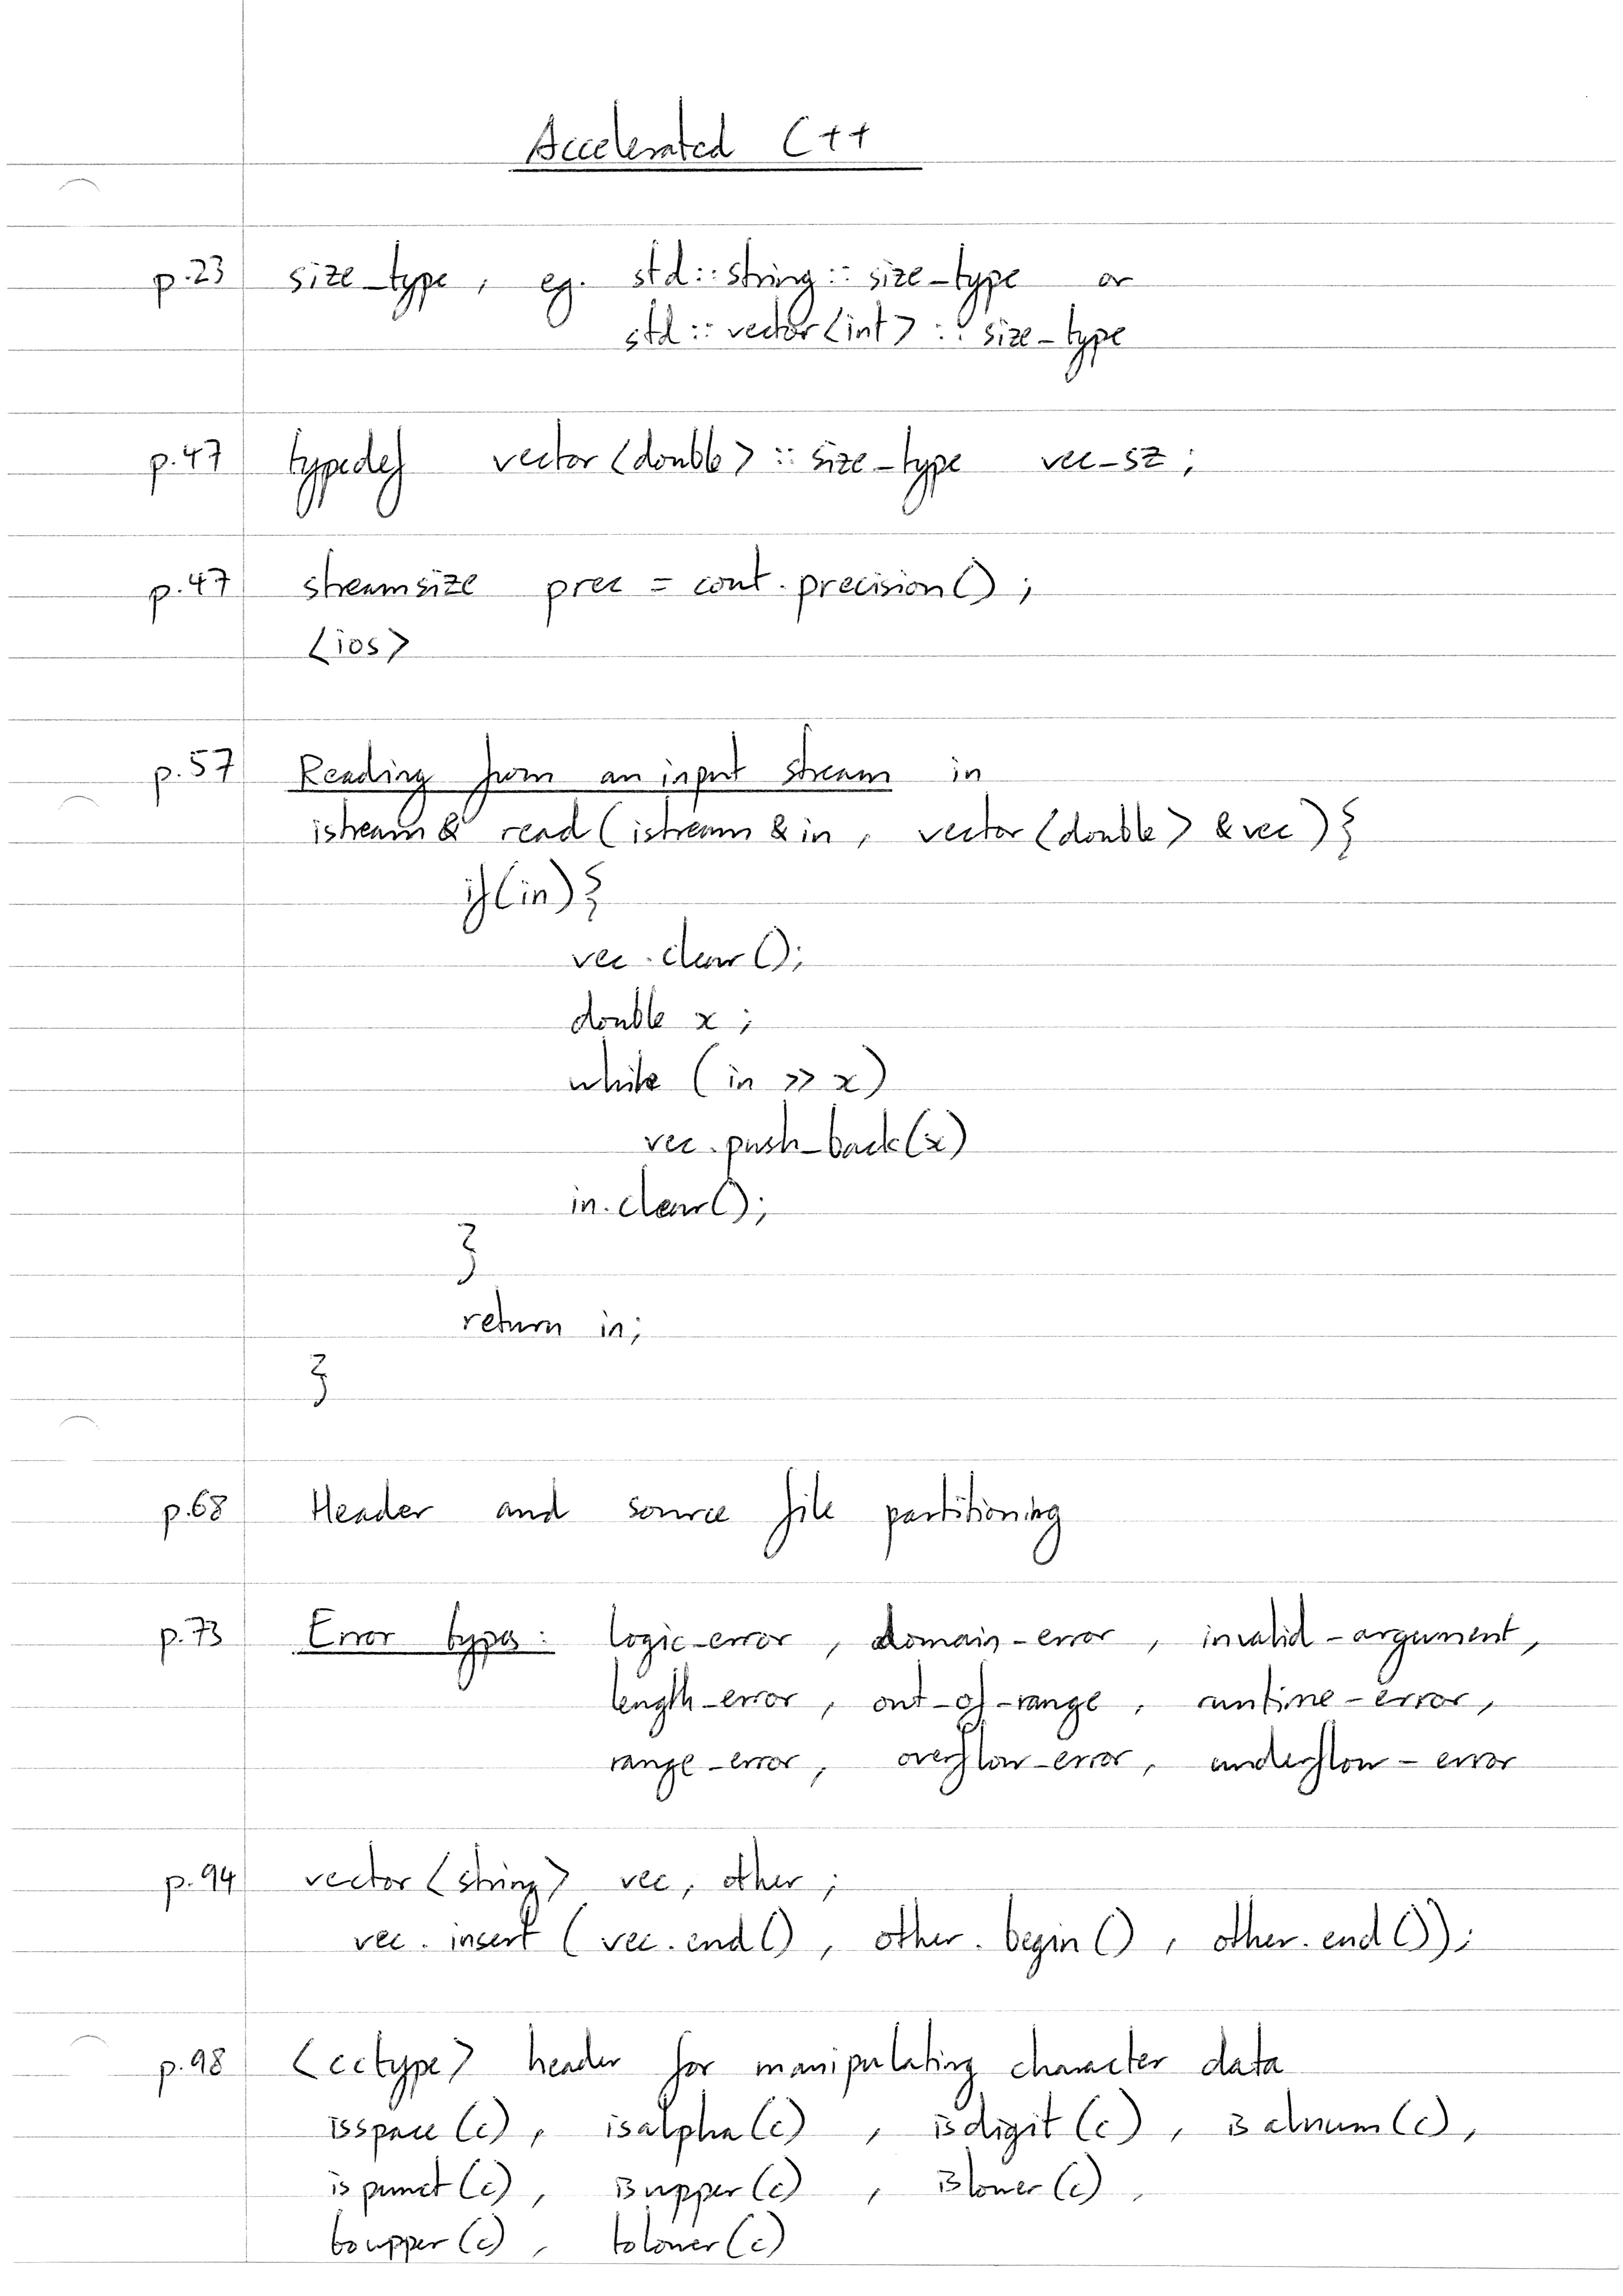 Accelerated C++
p.23 size_type, eg. std::string::size_type or
std::vector<int>::size_type
p.47 typedef vector<double>::size_type vec_sz;
p.47 streamsize prec = cout.precision();
<ios>
p.57 Reading from an input stream in
istream & read(istream & in, vector<double> & vec){
if(in){
vec.clear();
double x;
while (in >> x)
vec.push_back(x)
in.clear();
}
return in;
}
p.68 Header and source file partitioning
p.73 Error types: logic_error, domain_error, invalid_argument,
length_error, out_of_range, runtime_error,
range_error, overflow_error, underflow_error
p.94 vector<string> vec, other;
vec.insert(vec.end(), other.begin(), other.end());
p.98 <cctype> header for manipulating character data
isspace(c), isalpha(c), isdigit(c), isalnum(c),
ispunct(c), isupper(c), islower(c),
toupper(c), tolower(c)